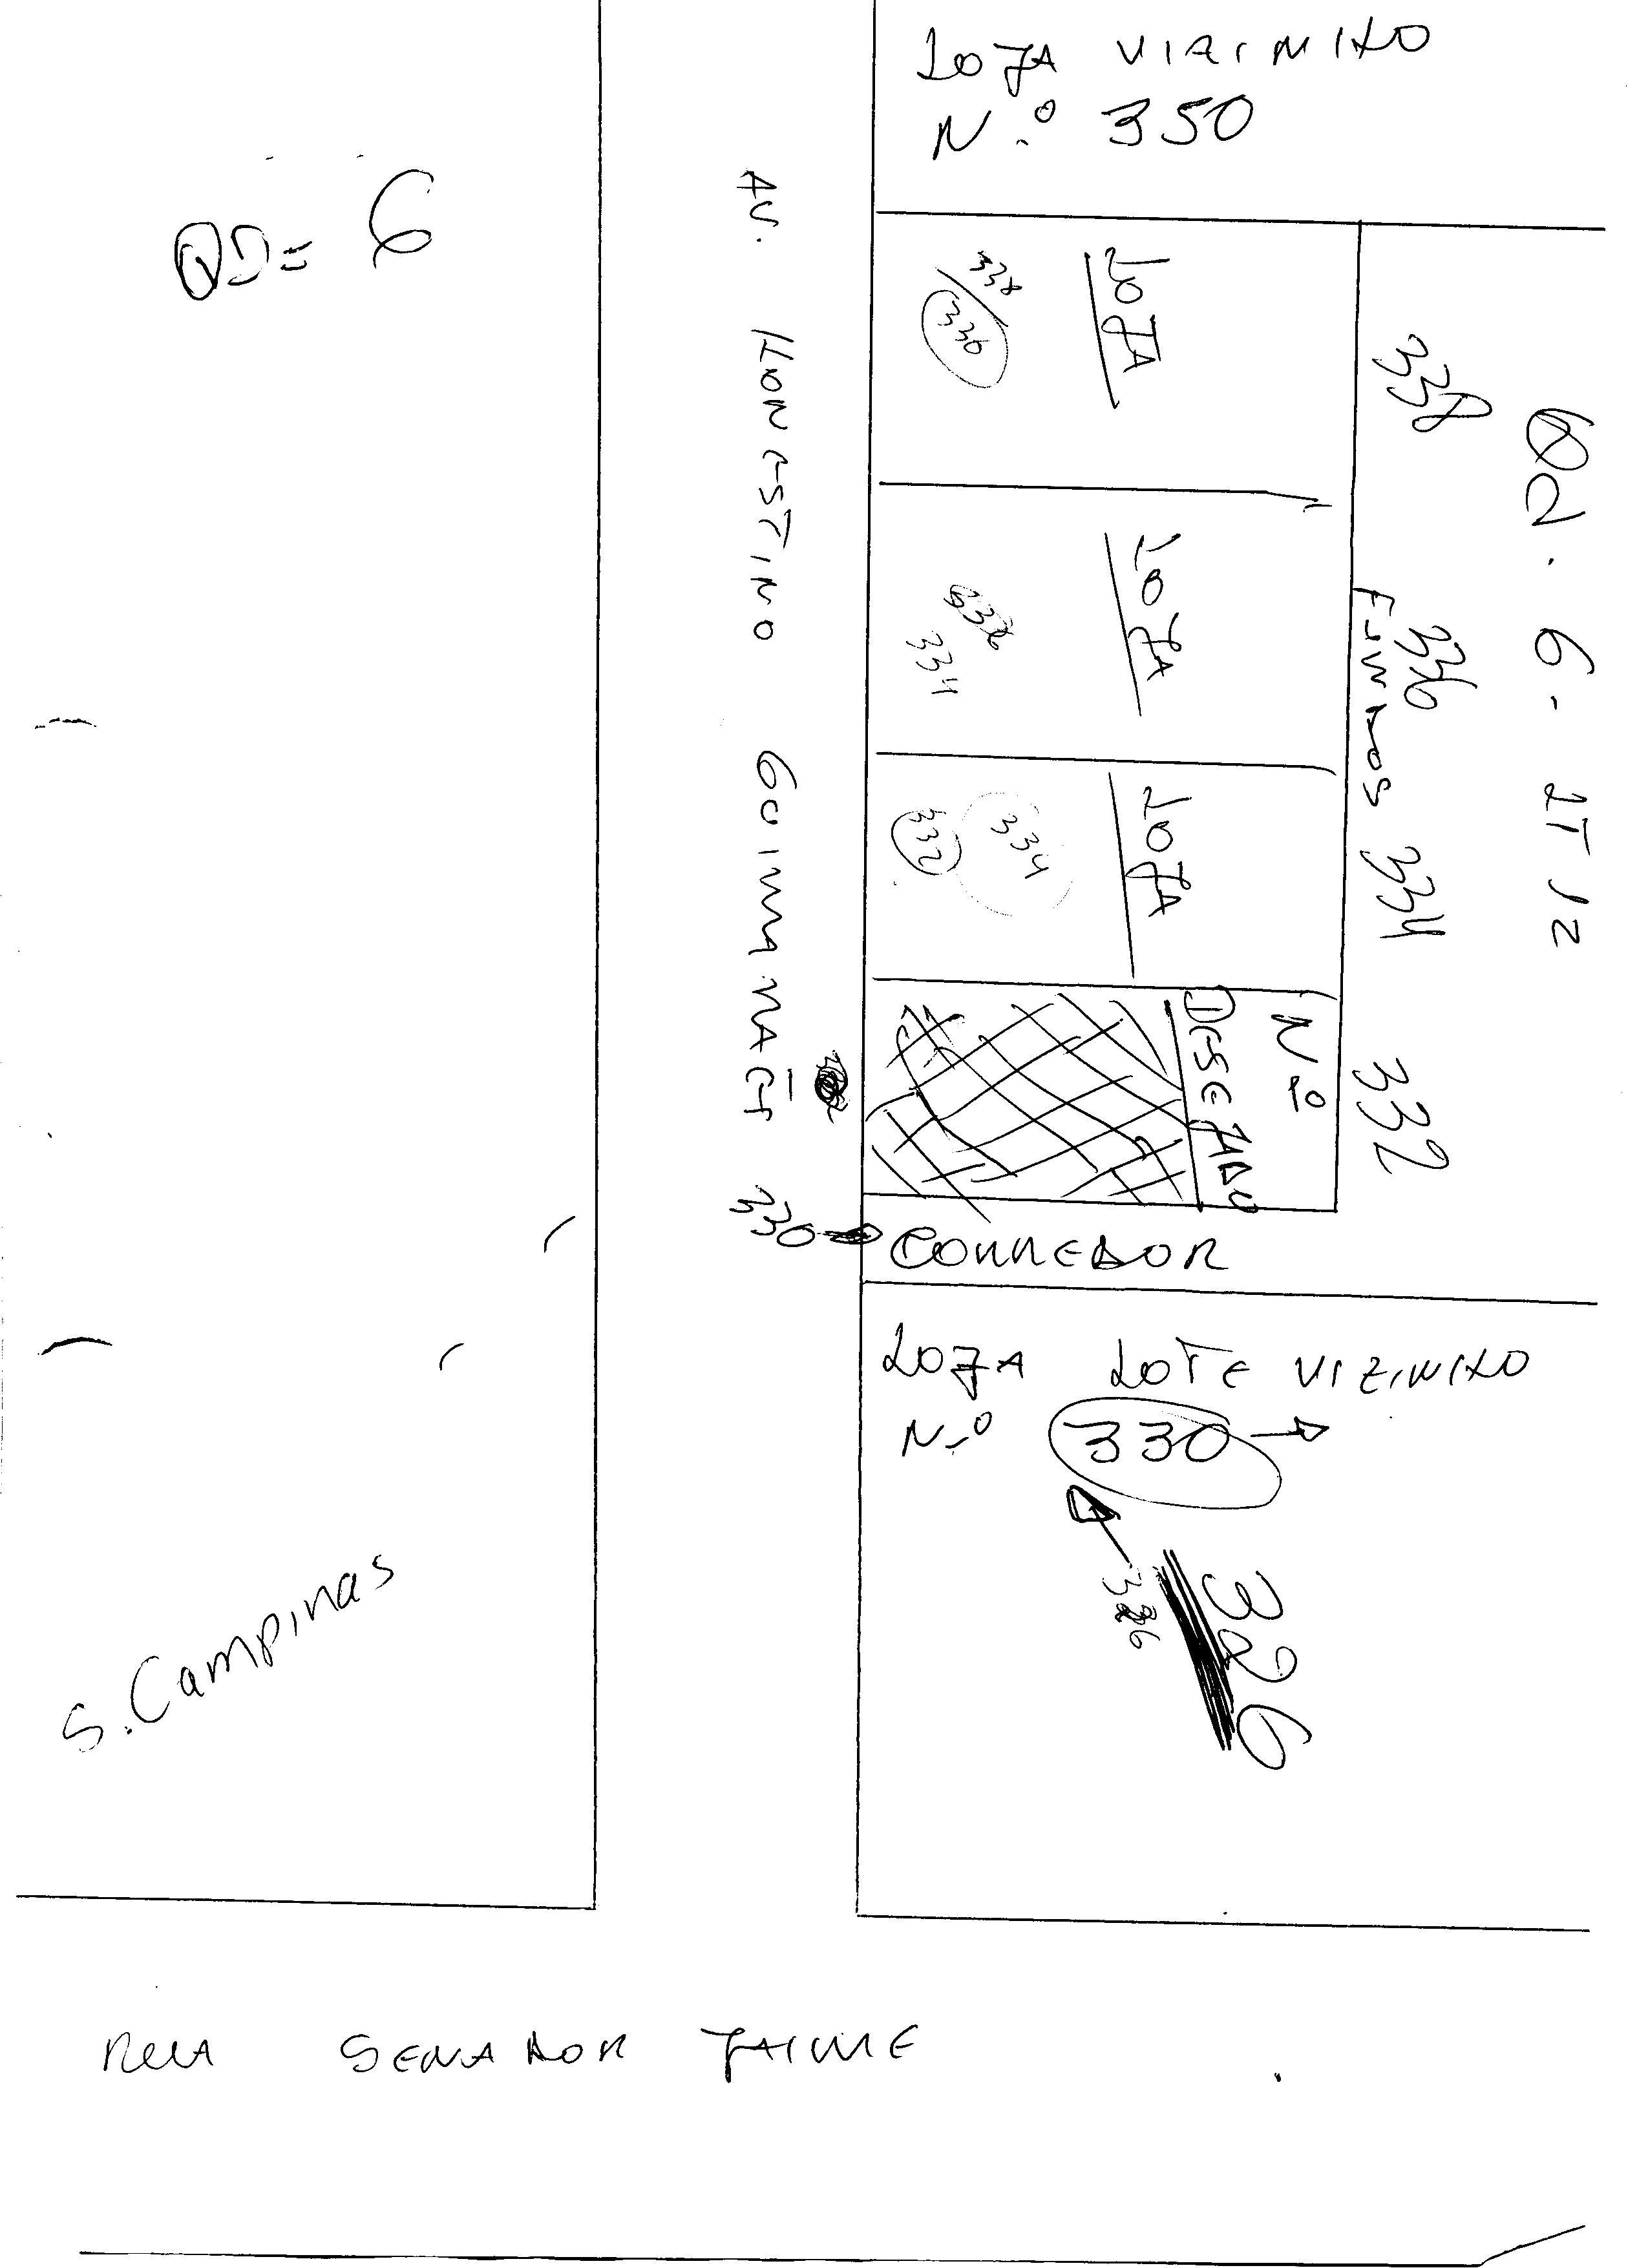 LOJA VIZINHO
N.º 350
QD= 6
AV. HONESTINO GUIMARÃES
LOJA
338
336
LOJA
336
334
LOJA
334
332
Nº
DESEJADO
338
336
334
332
FUNDOS
QD. 6 - LT 12
330
CORREDOR
LOJA LOTE VIZINHO
N.º 330
326
326
S. Campinas
RUA SENADOR JAIME